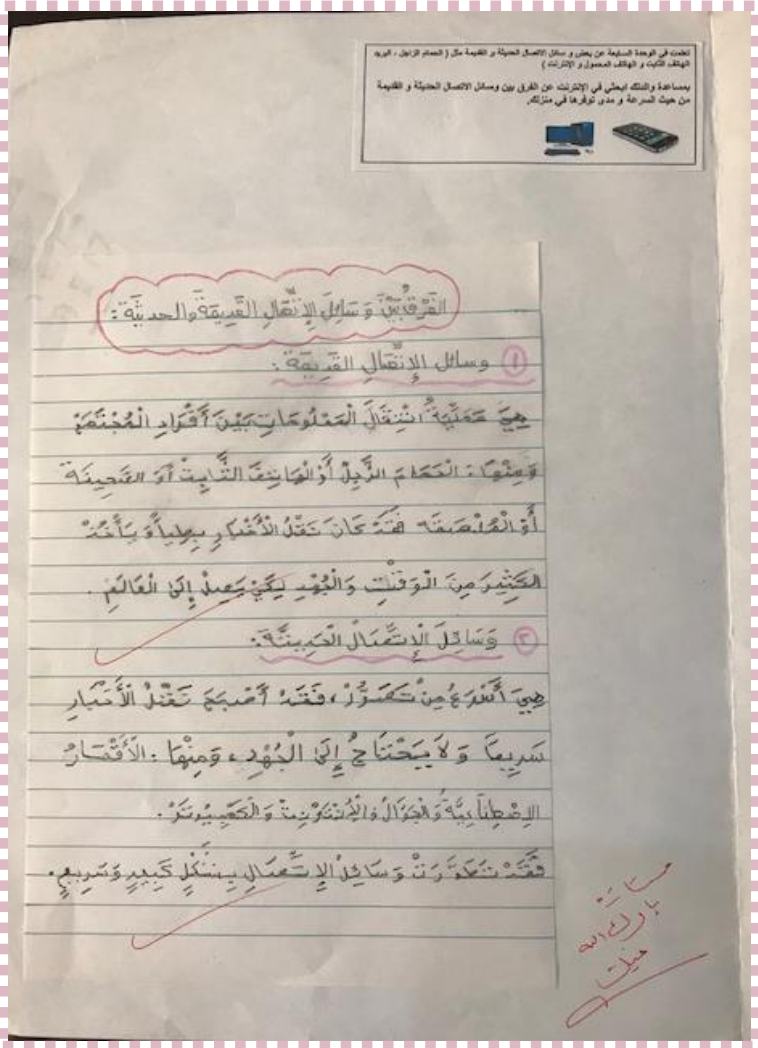 تعلمت في الوحدة السابعة عن بعض و سائل الاتصال الحديثة و القديمة مثل ( الحمام الزاجل ، البريد
الهاتف الثابت و الهاتف المحمول و الإنترنت )
بمساعدة والدتك ابحثي في الإنترنت عن الفرق بين وسائل الاتصال الحديثة و القديمة
من حيث السرعة و مدى توفرها في منزلك.
الفَرْقُ بَيْنَ وَسَائِلَ الإِتِّصَالِ القَدِيمَةَ والحديثَة :
① وسائل الإِتِّصَالِ القَدِيمَة :
هِيَ عَمَلِيَّةُ انْتِقَالَ الْمَعْلُومَاتِ بَيْنَ أَفْرَادِ الْمُجْتَمَعْ
وَمِنْهَا : الْحَمَامَ الزَّجِلْ أَوْ الْهَاتِفَ الثَّابِتْ أَوْ الصَّحِيفَةَ
أَوْ الْمُلْصَقَه فَقَدْ كَانَ نَقْلُ الْأَخْبَارِ بطِيأً وَ يَأْخُذْ
الْكَثِيرَ مِنَ الْوَقْتِ وَالْجُهْدِ لِكَيْ يَصِلْ إِلَى الْعَالَمِ .
② وَسَائِلَ الْإِتِّصَالْ الْحَدِيثَّة:
هِيَ أَسْرَعُ مِنْ تَصَوُّرْ ، فَقَدْ أَصْبَحَ نَقْلُ الْأَخْبَارِ
سَرِيعاً وَ لاَ يَحْتَاجُ إِلَى الْجُهْدِ ، وَمِنْهَا : الْأَقْمَارُ
الإِصْطِنَاعِيَّةُ وَ الْجَوَّالُ وَالْإِنْتَرْنِتْ وَ الْكَمْبِيُوتَرْ .
فَقَدْ تَطَوَّرَتْ وَسَائِلُ الإِتِّصَالِ بِشَكْلٍ كَبِيرٍ وَسَرِيعٍ .
بارك الله
فيك